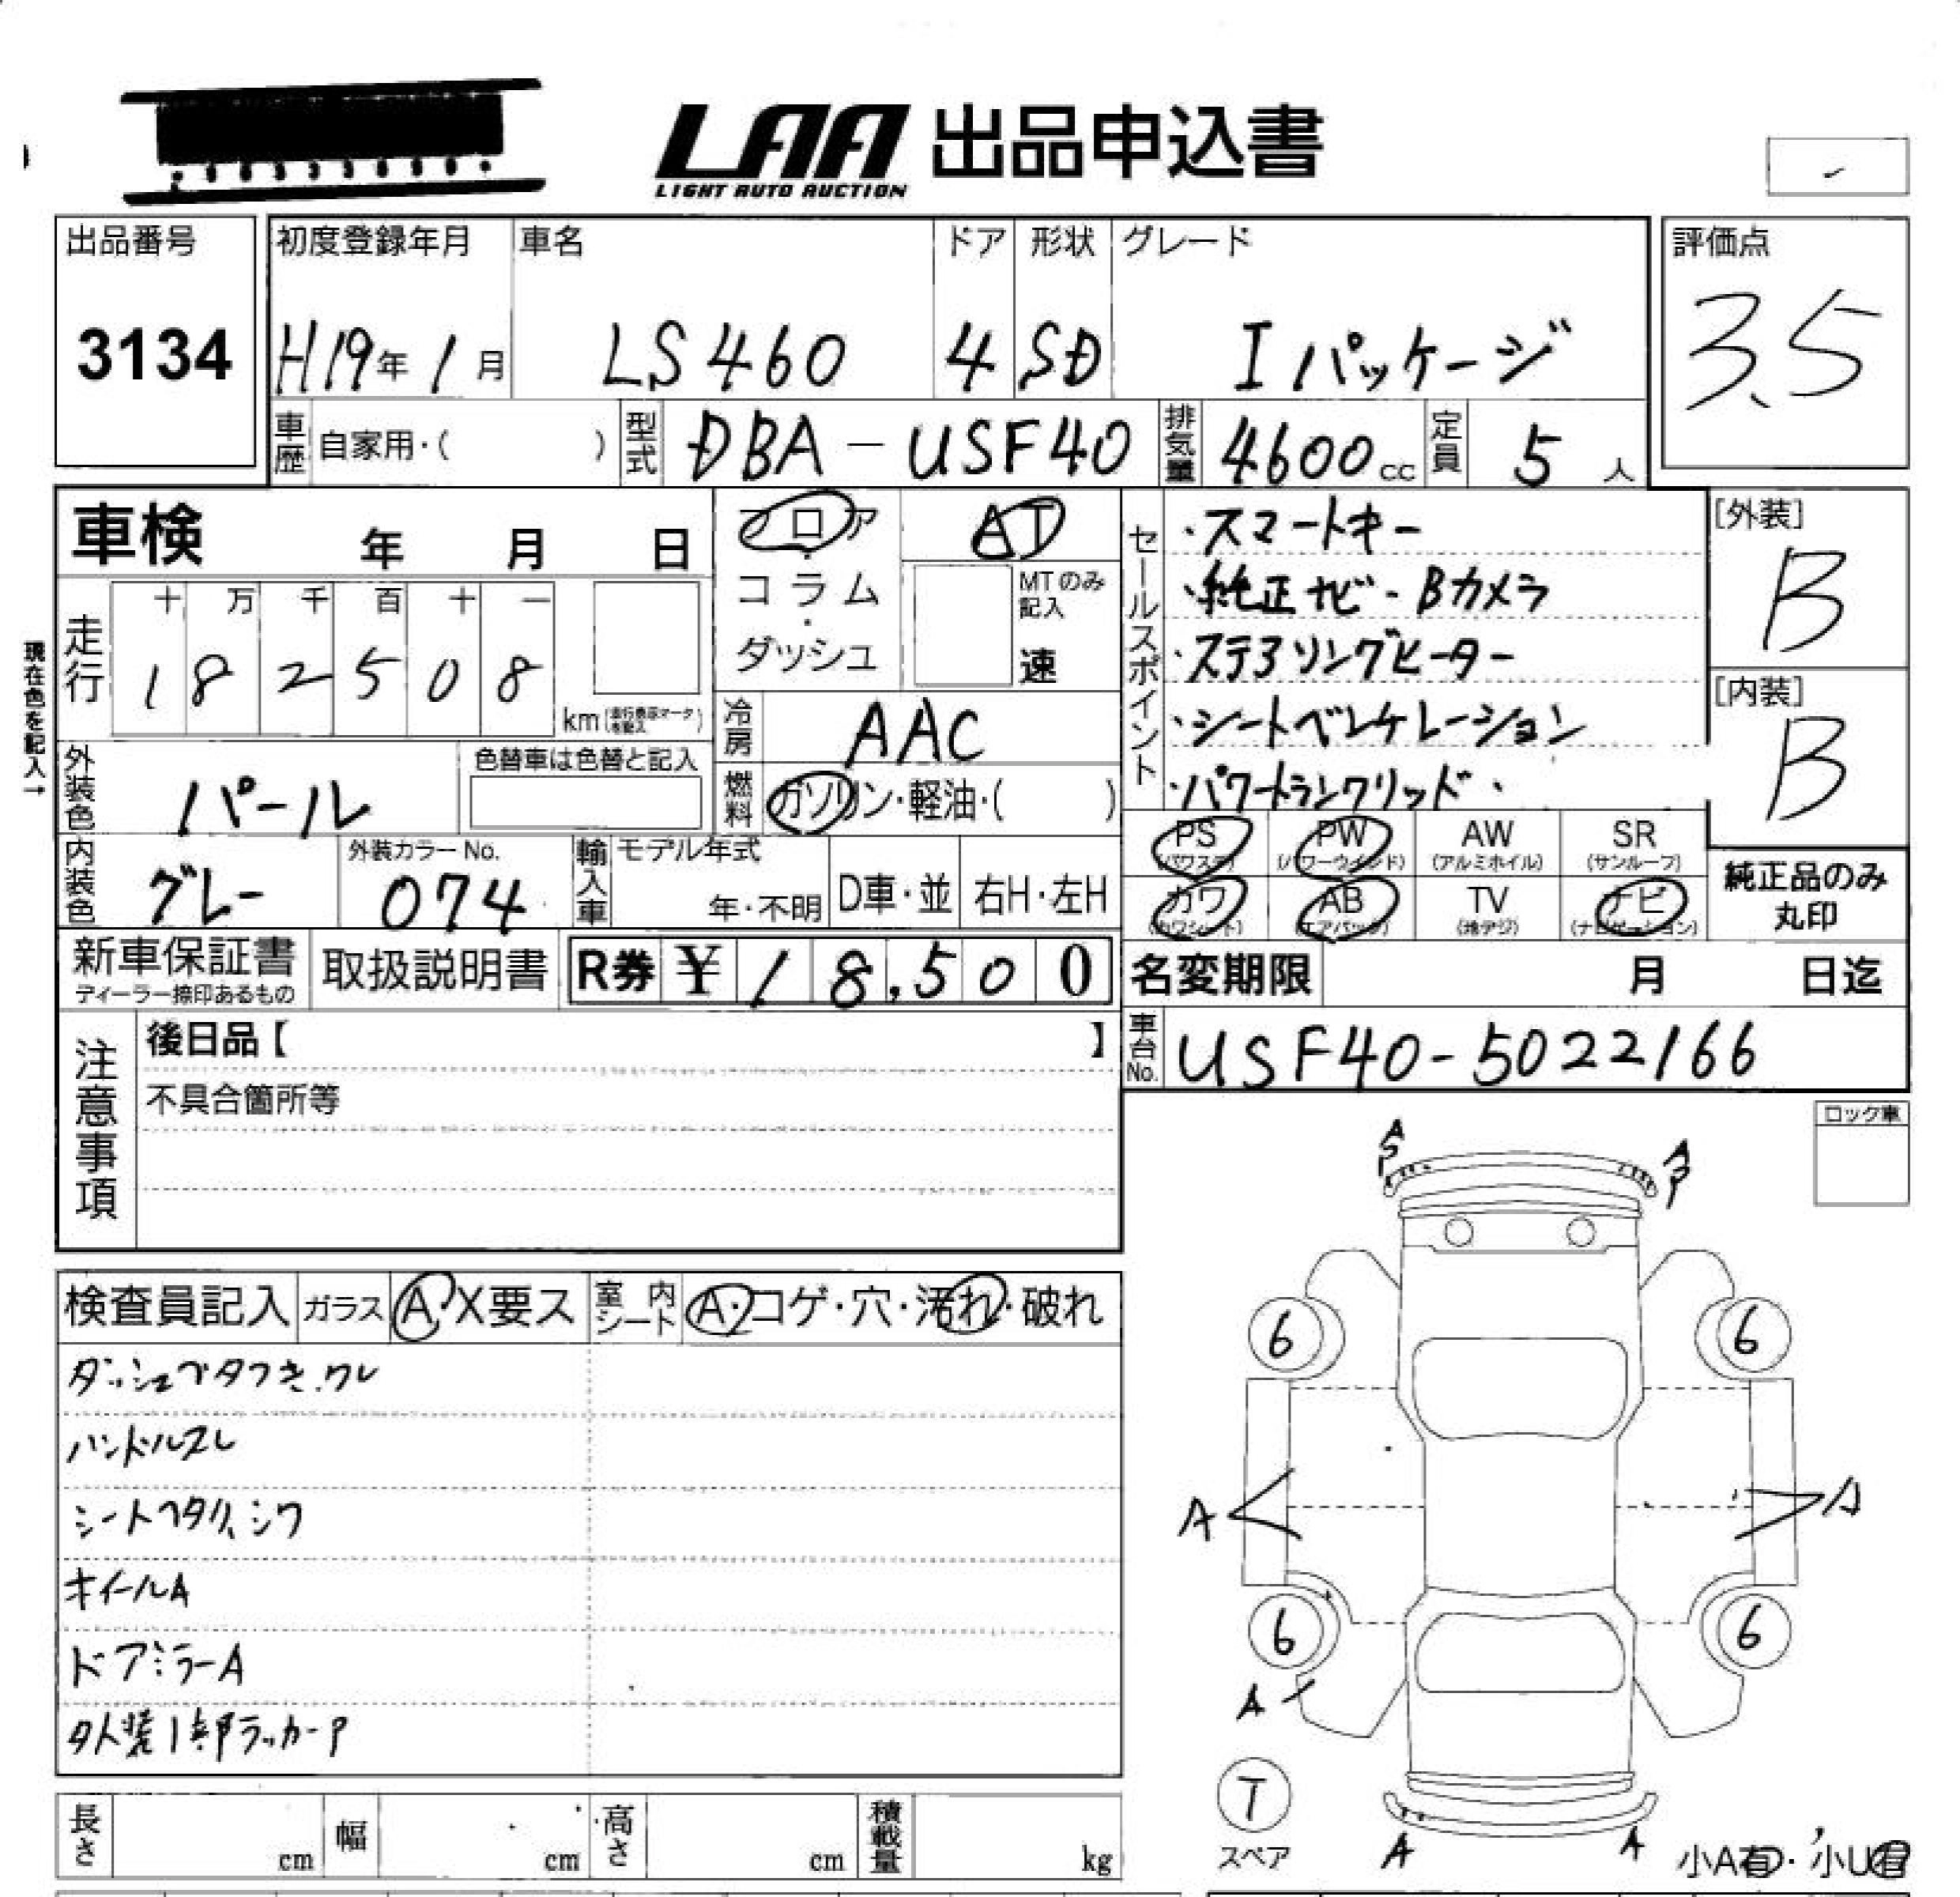 LAA 出品申込書
LIGHT AUTO AUCTION
出品番号 初度登録年月 車名 ドア 形状 グレード 評価点
3134 H19年 1月 LS460 4 SD Iパッケージ 3.5
車歴 自家用・( ) 型式 DBA-USF40 排気量 4600cc 定員 5人
車検 年 月 日
フロア・コラム・ダッシュ
AT
MTのみ記入
速
セールスポイント
・スマートキー
・純正ナビ・Bカメラ
・ステアリングヒーター
・シートベンチレーション
・パワートランクリッド・
[外装]
B
[内装]
B
現在色を記入→
走行 十 万 千 百 十 一
1 8 2 5 0 8 km
冷房 AAC
外装色 パール 色替車は色替と記入
燃料 ガソリン・軽油・( )
内装色 グレー 外装カラーNo. 074
輸入車 モデル年式 年・不明 D車・並 右H・左H
PS (パワステ) PW (パワーウインド) AW (アルミホイル) SR (サンルーフ)
カワ (カワシート) AB (エアバッグ) TV (地デジ) ナビ (ナビゲーション)
純正品のみ
丸印
新車保証書 ディーラー捺印あるもの 取扱説明書 R券 ¥18,500
名変期限 月 日迄
車台No. USF40-5022166
注意事項
後日品【 】
不具合箇所等
ロック車
A
S
P
A
P
検査員記入 ガラス A・X要ス 室内シート A・コゲ・穴・汚れ・破れ
ダッシュベタつき.ワレ
ハンドルスレ
シートヘタリ、シワ
ホイールA
ドアミラーA
外装1部ラッカーP
6 6
A A
6 6
A
T
スペア
A A
小A有・小U有
長さ cm 幅 cm 高さ cm 積載量 kg